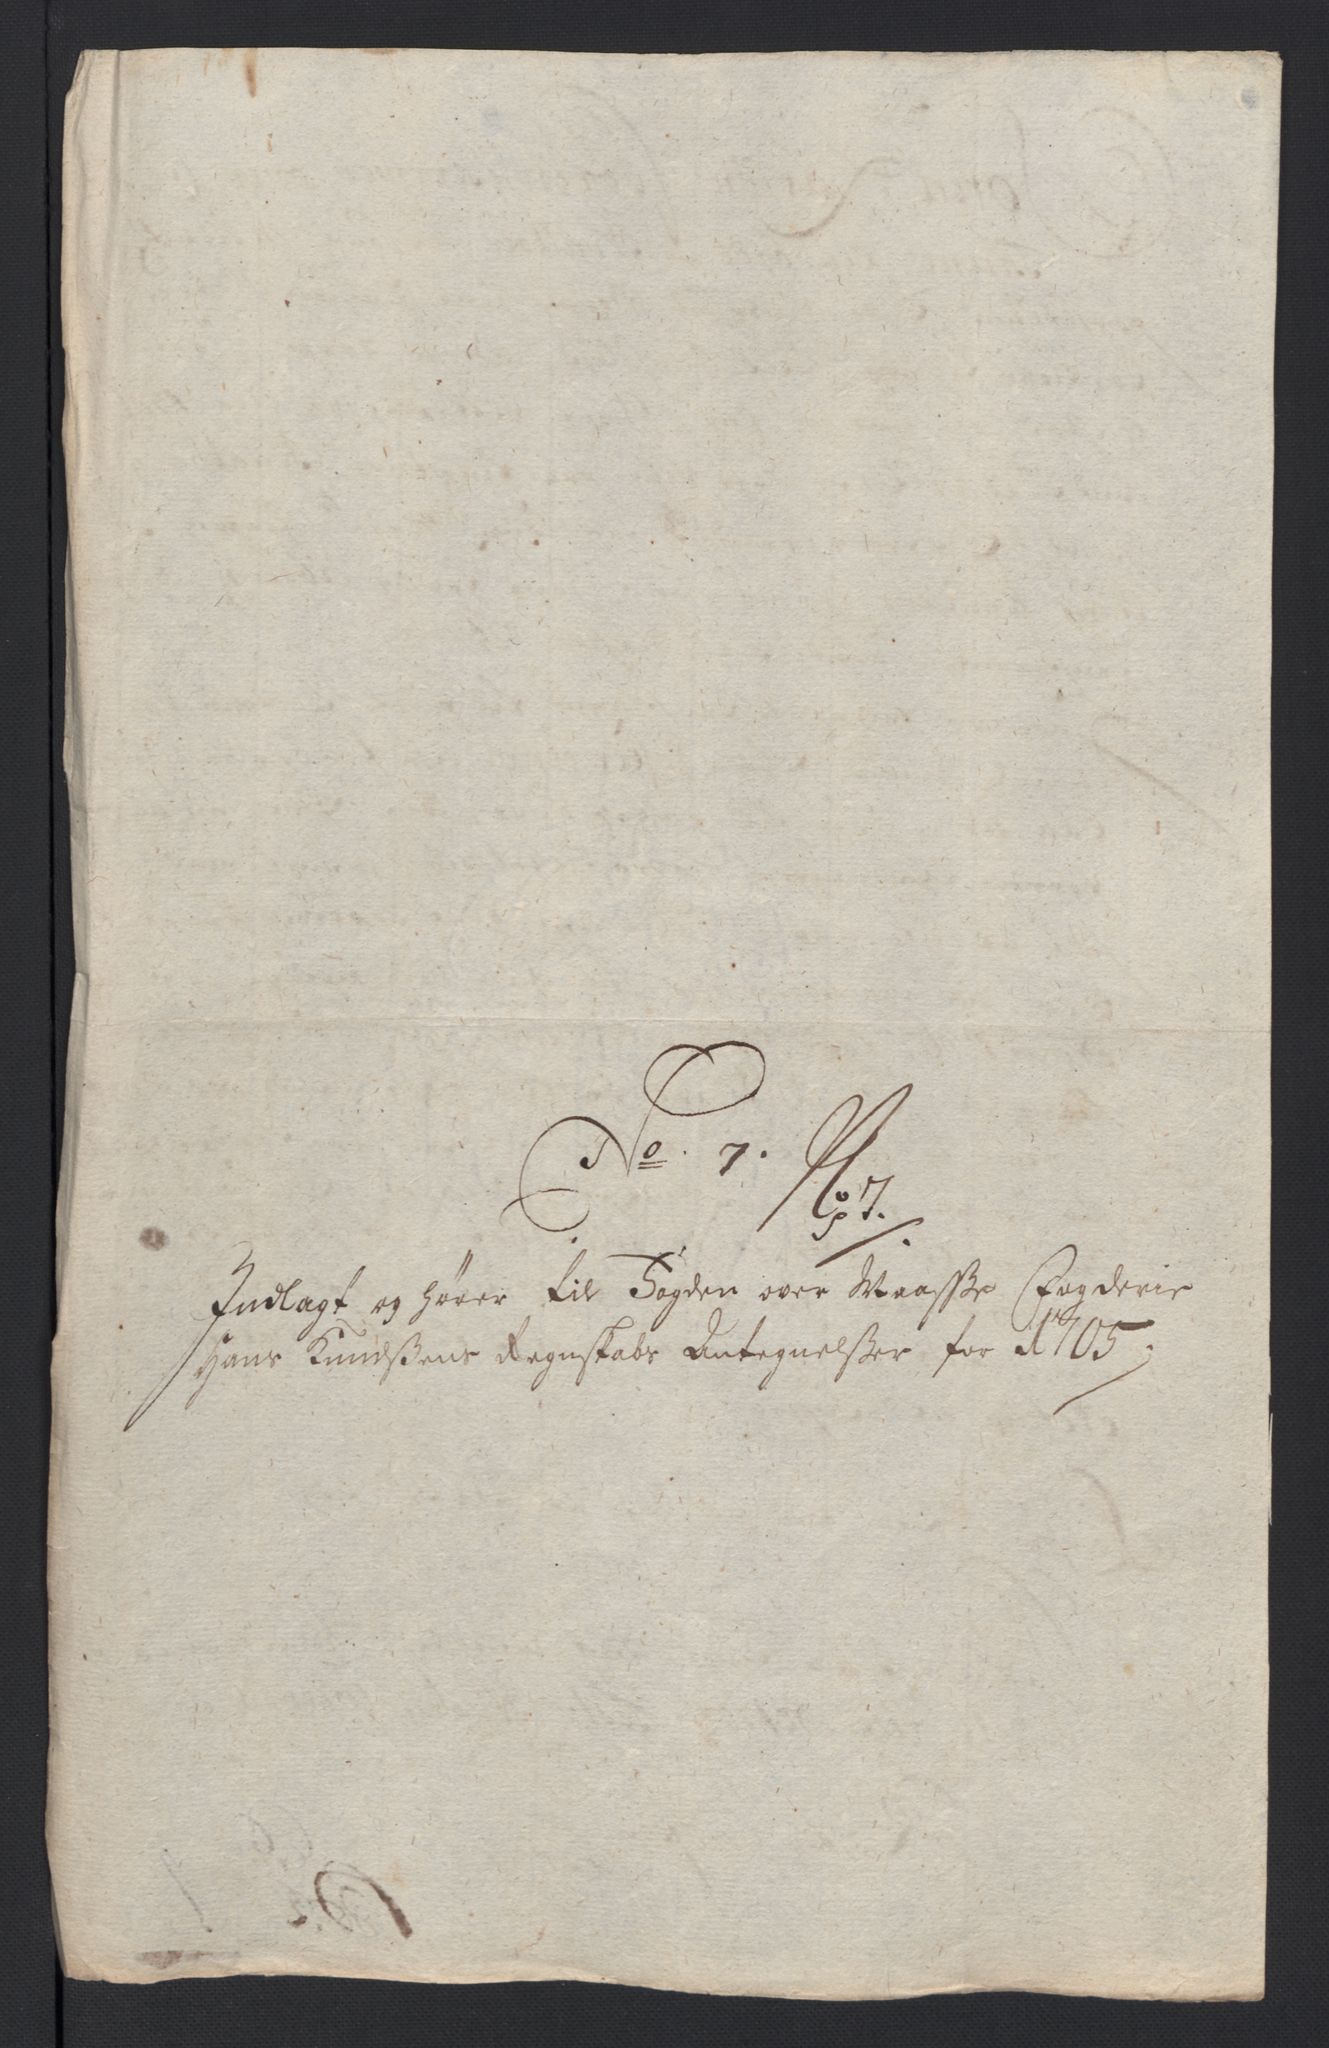 No. 7. No 7.
Indlagt og hører til Fogden over Waasße Fogderie
Hans Knudsßens Regnskabs Antegnelsßer for A 1705